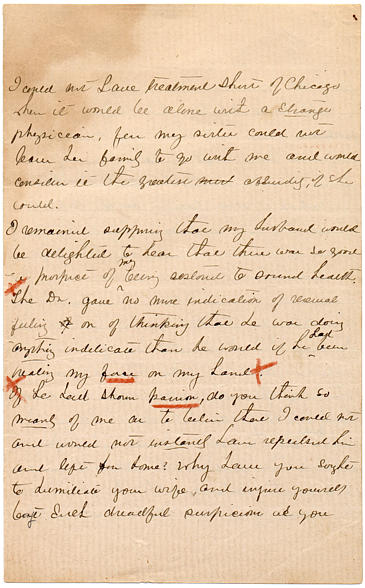 I could not have treatment short of Chicago
when it would be alone with a strange
physicean, for my sister could not
leave her family to go with me and would
consider it the greatest must absurdity, if she
could.
I remained supposing that my husband would
be delighted to hear that there was so good
a prospect of my being restored to sound health.
The Dr. gave no more indication of sexual
feeling or on of thinking that he was doing
anything indelicate than he would if he had been
treating my face or my hand.
If he had shown passion, do you think so
meanly of me as to believe that I could not
and would not instantly have repelled him
and left for home? Why have you sought
to humiliate your wife, and injure yourself
by such dreadful suspicions as you